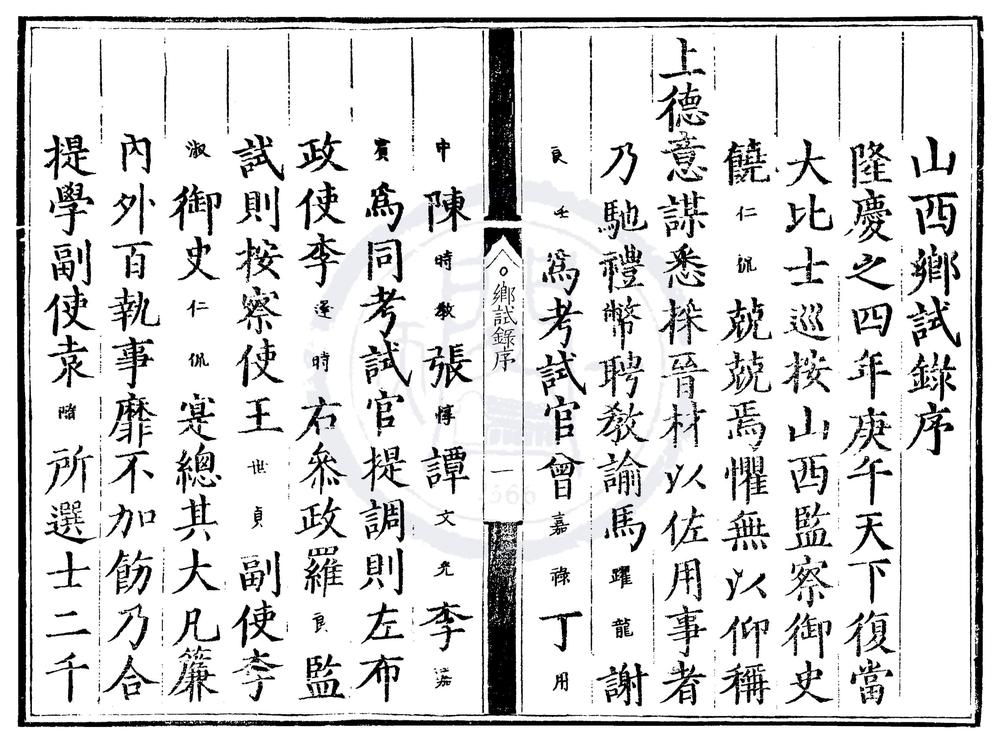 山西鄉試錄序
隆慶之四年庚午天下復當
大比士巡按山西監察御史
饒仁侃兢兢焉懼無以仰稱
上德意謀悉採晉材以佐用事者
乃馳禮幣聘教諭馬躍龍謝
良壬爲考試官曾嘉祿丁用
鄉試錄序
一
中陳時教張惇譚文光李嘉
賓爲同考試官提調則左布
政使李遂時右叅政羅良監
試則按察使王世貞副使李
淑御史仁侃寔總其大凡簾
內外百執事靡不加飭乃合
提學副使袁所選士二千